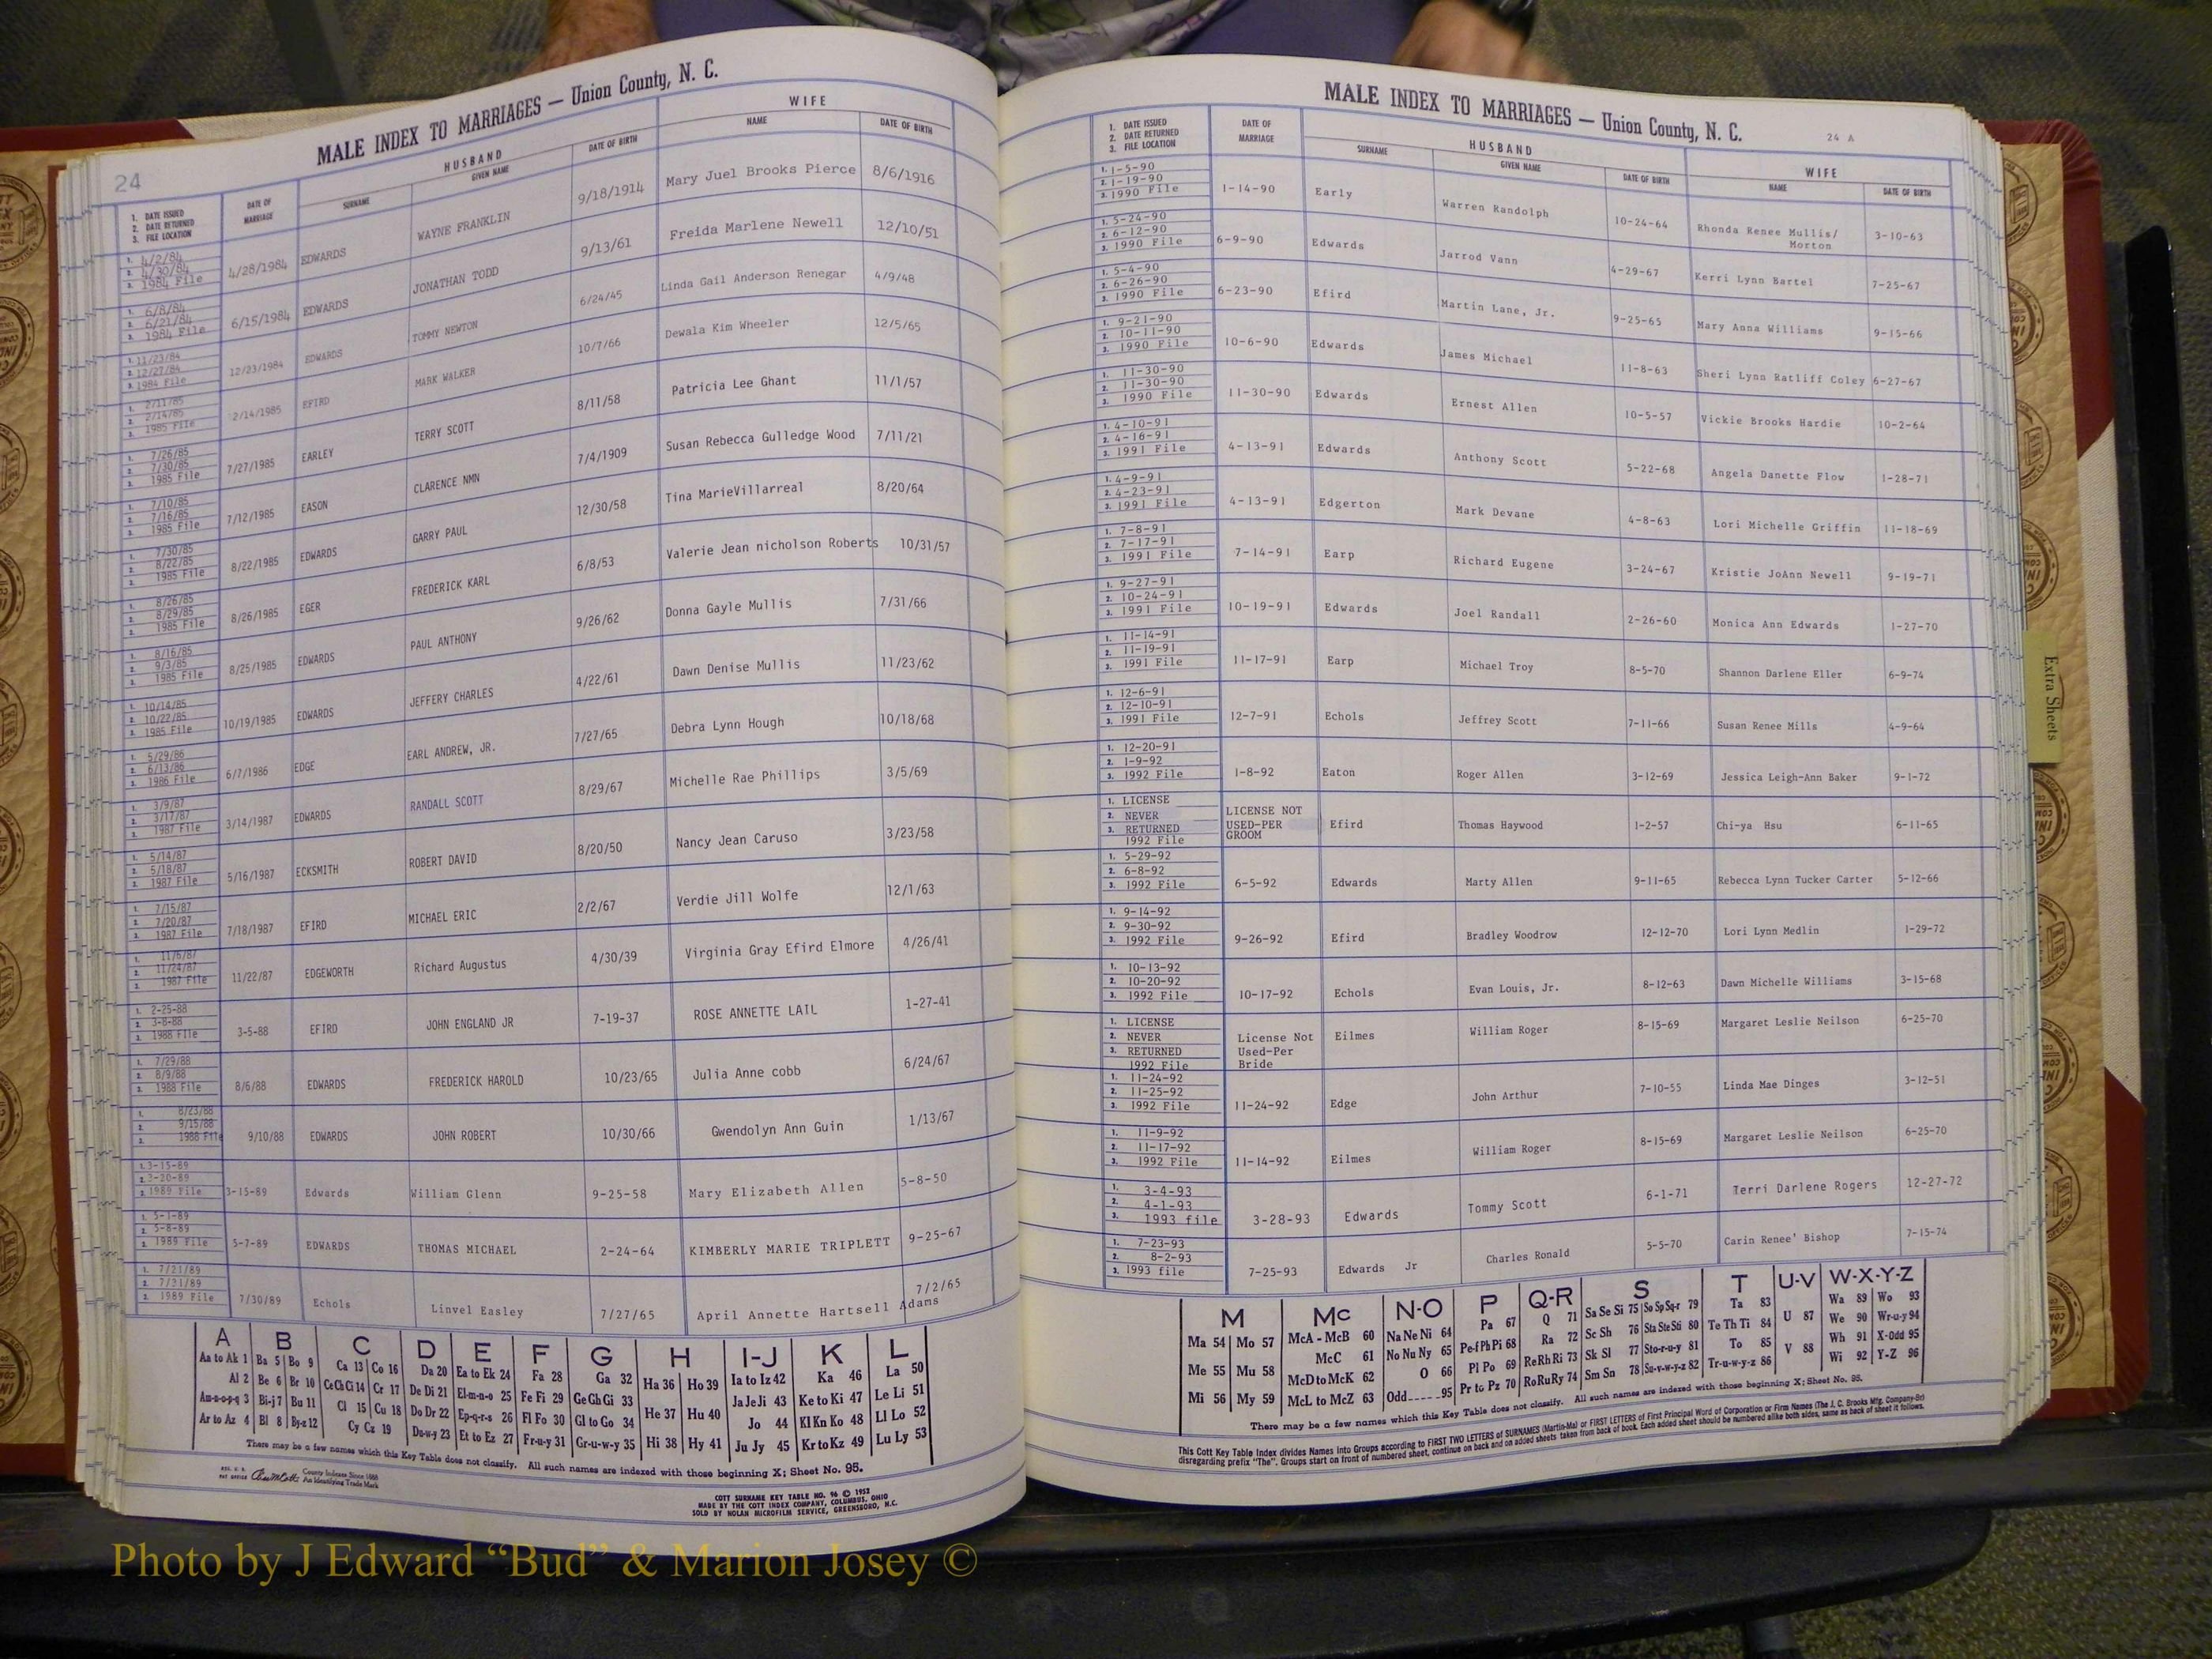 24
MALE INDEX TO MARRIAGES — Union County, N. C.
1. DATE ISSUED
2. DATE RETURNED
3. FILE LOCATION
DATE OF MARRIAGE
HUSBAND
SURNAME GIVEN NAME DATE OF BIRTH
WIFE
NAME DATE OF BIRTH
1. 4/2/84
2. 4/30/84
3. 1984 File
4/28/1984 EDWARDS WAYNE FRANKLIN 9/18/1914 Mary Juel Brooks Pierce 8/6/1916
1. 6/8/84
2. 6/21/84
3. 1984 File
6/15/1984 EDWARDS JONATHAN TODD 9/13/61 Freida Marlene Newell 12/10/51
1. 11/23/84
2. 12/27/84
3. 1984 File
12/23/1984 EDWARDS TOMMY NEWTON 6/24/45 Linda Gail Anderson Renegar 4/9/48
1. 2/11/85
2. 2/14/85
3. 1985 File
2/14/1985 EFIRD MARK WALKER 10/7/66 Dewala Kim Wheeler 12/5/65
1. 7/26/85
2. 7/30/85
3. 1985 File
7/27/1985 EARLEY TERRY SCOTT 8/11/58 Patricia Lee Ghant 11/1/57
1. 7/10/85
2. 7/16/85
3. 1985 File
7/12/1985 EASON CLARENCE NMN 7/4/1909 Susan Rebecca Gulledge Wood 7/11/21
1. 7/30/85
2. 8/22/85
3. 1985 File
8/22/1985 EDWARDS GARRY PAUL 12/30/58 Tina MarieVillarreal 8/20/64
1. 8/26/85
2. 8/29/85
3. 1985 File
8/26/1985 EGER FREDERICK KARL 6/8/53 Valerie Jean nicholson Roberts 10/31/57
1. 8/16/85
2. 9/3/85
3. 1985 File
8/25/1985 EDWARDS PAUL ANTHONY 9/26/62 Donna Gayle Mullis 7/31/66
1. 10/14/85
2. 10/22/85
3. 1985 File
10/19/1985 EDWARDS JEFFERY CHARLES 4/22/61 Dawn Denise Mullis 11/23/62
1. 5/29/86
2. 6/13/86
3. 1986 File
6/7/1986 EDGE EARL ANDREW, JR. 7/27/65 Debra Lynn Hough 10/18/68
1. 3/9/87
2. 3/17/87
3. 1987 File
3/14/1987 EDWARDS RANDALL SCOTT 8/29/67 Michelle Rae Phillips 3/5/69
1. 5/14/87
2. 5/18/87
3. 1987 File
5/16/1987 ECKSMITH ROBERT DAVID 8/20/50 Nancy Jean Caruso 3/23/58
1. 7/15/87
2. 7/20/87
3. 1987 File
7/18/1987 EFIRD MICHAEL ERIC 2/2/67 Verdie Jill Wolfe 12/1/63
1. 11/6/87
2. 11/24/87
3. 1987 File
11/22/87 EDGEWORTH Richard Augustus 4/30/39 Virginia Gray Efird Elmore 4/26/41
1. 2-25-88
2. 3-8-88
3. 1988 File
3-5-88 EFIRD JOHN ENGLAND JR 7-19-37 ROSE ANNETTE LAIL 1-27-41
1. 7/29/88
2. 8/9/88
3. 1988 File
8/6/88 EDWARDS FREDERICK HAROLD 10/23/65 Julia Anne cobb 6/24/67
1. 8/23/88
2. 9/15/88
3. 1988 File
9/10/88 EDWARDS JOHN ROBERT 10/30/66 Gwendolyn Ann Guin 1/13/67
1. 3-15-89
2. 3-20-89
3. 1989 File
3-15-89 Edwards William Glenn 9-25-58 Mary Elizabeth Allen 5-8-50
1. 5-1-89
2. 5-8-89
3. 1989 File
5-7-89 EDWARDS THOMAS MICHAEL 2-24-64 KIMBERLY MARIE TRIPLETT 9-25-67
1. 7/21/89
2. 7/31/89
3. 1989 File
7/30/89 Echols Linvel Easley 7/27/65 April Annette Hartsell Adams 7/2/65
A B C D E F G H I-J K L
Aa to Ak 1 Ba 5 Bo 9 Ca 13 Co 16 Da 20 Ea to Ek 24 Fa 28 Ga 32 Ha 36 Ho 39 Ia to Iz 42 Ka 46 La 50
Al 2 Be 6 Br 10 Ce Ch Ci 14 Cr 17 De Di 21 El-m-n-o 25 Fe Fi 29 Ge Gh Gi 33 He 37 Hu 40 Ja Je Ji 43 Ke to Ki 47 Le Li 51
Am-n-o-p-q 3 Bi-j 7 Bu 11 Cl 15 Cu 18 Do Dr 22 Ep-q-r-s 26 Fl Fo 30 Gl to Go 34 Hi 38 Hy 41 Jo 44 Kl Kn Ko 48 Ll Lo 52
Ar to Az 4 Bl 8 By-z 12 Cy Cz 19 Du-w-y 23 Et to Ez 27 Fr-u-y 31 Gr-u-w-y 35 Ju Jy 45 Kr to Kz 49 Lu Ly 53
There may be a few names which this Key Table does not classify. All such names are indexed with those beginning X; Sheet No. 95.
County Indexes Since 1888
An Identifying Trade Mark
COTT SURNAME KEY TABLE NO. 96 © 1952
MADE BY THE COTT INDEX COMPANY, COLUMBUS, OHIO
SOLD BY NOLAN MICROFILM SERVICE, GREENSBORO, N.C.
MALE INDEX TO MARRIAGES — Union County, N. C.
24 A
1. DATE ISSUED
2. DATE RETURNED
3. FILE LOCATION
DATE OF MARRIAGE
HUSBAND
SURNAME GIVEN NAME DATE OF BIRTH
WIFE
NAME DATE OF BIRTH
1. 1-5-90
2. 1-19-90
3. 1990 File
1-14-90 Early Warren Randolph 10-24-64 Rhonda Renee Mullis/ Morton 3-10-63
1. 5-24-90
2. 6-12-90
3. 1990 File
6-9-90 Edwards Jarrod Vann 4-29-67 Kerri Lynn Bartel 7-25-67
1. 5-4-90
2. 6-26-90
3. 1990 File
6-23-90 Efird Martin Lane, Jr. 9-25-65 Mary Anna Williams 9-15-66
1. 9-21-90
2. 10-11-90
3. 1990 File
10-6-90 Edwards James Michael 11-8-63 Sheri Lynn Ratliff Coley 6-27-67
1. 11-30-90
2. 11-30-90
3. 1990 File
11-30-90 Edwards Ernest Allen 10-5-57 Vickie Brooks Hardie 10-2-64
1. 4-10-91
2. 4-16-91
3. 1991 File
4-13-91 Edwards Anthony Scott 5-22-68 Angela Danette Flow 1-28-71
1. 4-9-91
2. 4-23-91
3. 1991 File
4-13-91 Edgerton Mark Devane 4-8-63 Lori Michelle Griffin 11-18-69
1. 7-8-91
2. 7-17-91
3. 1991 File
7-14-91 Earp Richard Eugene 3-24-67 Kristie JoAnn Newell 9-19-71
1. 9-27-91
2. 10-24-91
3. 1991 File
10-19-91 Edwards Joel Randall 2-26-60 Monica Ann Edwards 1-27-70
1. 11-14-91
2. 11-19-91
3. 1991 File
11-17-91 Earp Michael Troy 8-5-70 Shannon Darlene Eller 6-9-74
1. 12-6-91
2. 12-10-91
3. 1991 File
12-7-91 Echols Jeffrey Scott 7-11-66 Susan Renee Mills 4-9-64
1. 12-20-91
2. 1-9-92
3. 1992 File
1-8-92 Eaton Roger Allen 3-12-69 Jessica Leigh-Ann Baker 9-1-72
1. LICENSE
2. NEVER
3. RETURNED
1992 File
LICENSE NOT USED-PER GROOM Efird Thomas Haywood 1-2-57 Chi-ya Hsu 6-11-65
1. 5-29-92
2. 6-8-92
3. 1992 File
6-5-92 Edwards Marty Allen 9-11-65 Rebecca Lynn Tucker Carter 5-12-66
1. 9-14-92
2. 9-30-92
3. 1992 File
9-26-92 Efird Bradley Woodrow 12-12-70 Lori Lynn Medlin 1-29-72
1. 10-13-92
2. 10-20-92
3. 1992 File
10-17-92 Echols Evan Louis, Jr. 8-12-63 Dawn Michelle Williams 3-15-68
1. LICENSE
2. NEVER
3. RETURNED
1992 File
License Not Used-Per Bride Eilmes William Roger 8-15-69 Margaret Leslie Neilson 6-25-70
1. 11-24-92
2. 11-25-92
3. 1992 File
11-24-92 Edge John Arthur 7-10-55 Linda Mae Dinges 3-12-51
1. 11-9-92
2. 11-17-92
3. 1992 File
11-14-92 Eilmes William Roger 8-15-69 Margaret Leslie Neilson 6-25-70
1. 3-4-93
2. 4-1-93
3. 1993 file
3-28-93 Edwards Tommy Scott 6-1-71 Terri Darlene Rogers 12-27-72
1. 7-23-93
2. 8-2-93
3. 1993 file
7-25-93 Edwards Jr Charles Ronald 5-5-70 Carin Renee' Bishop 7-15-74
M Mc N-O P Q-R S T U-V W-X-Y-Z
Ma 54 Mo 57 McA - McB 60 Na Ne Ni 64 Pa 67 Q 71 Sa Se Si 75 So Sp Sq-r 79 Ta 83 U 87 Wa 89 Wo 93
Me 55 Mu 58 McC 61 No Nu Ny 65 Pe-f Ph Pi 68 Ra 72 Sc Sh 76 Sta Ste Sti 80 Te Th Ti 84 V 88 We 90 Wr-u-y 94
Mi 56 My 59 McD to McK 62 O 66 Pl Po 69 Re Rh Ri 73 Sk Sl 77 Sto-r-u-y 81 To 85 Wh 91 X-Odd 95
McL to McZ 63 Odd 95 Pr to Pz 70 Ro Ru Ry 74 Sm Sn 78 Su-v-w-y-z 82 Tr-u-w-y-z 86 Wi 92 Y-Z 96
There may be a few names which this Key Table does not classify. All such names are indexed with those beginning X; Sheet No. 95.
This Cott Key Table Index divides Names into Groups according to FIRST TWO LETTERS of SURNAMES (Martin-Ma) or FIRST LETTERS of First Principal Word of Corporation or Firm Names (The J. C. Brooks Mfg. Company-Br)
disregarding prefix "The". Groups start on front of numbered sheet, continue on back and on added sheets taken from back of book. Each added sheet should be numbered alike both sides, same as back of sheet it follows.
Extra Sheets
Photo by J Edward “Bud” & Marion Josey ©